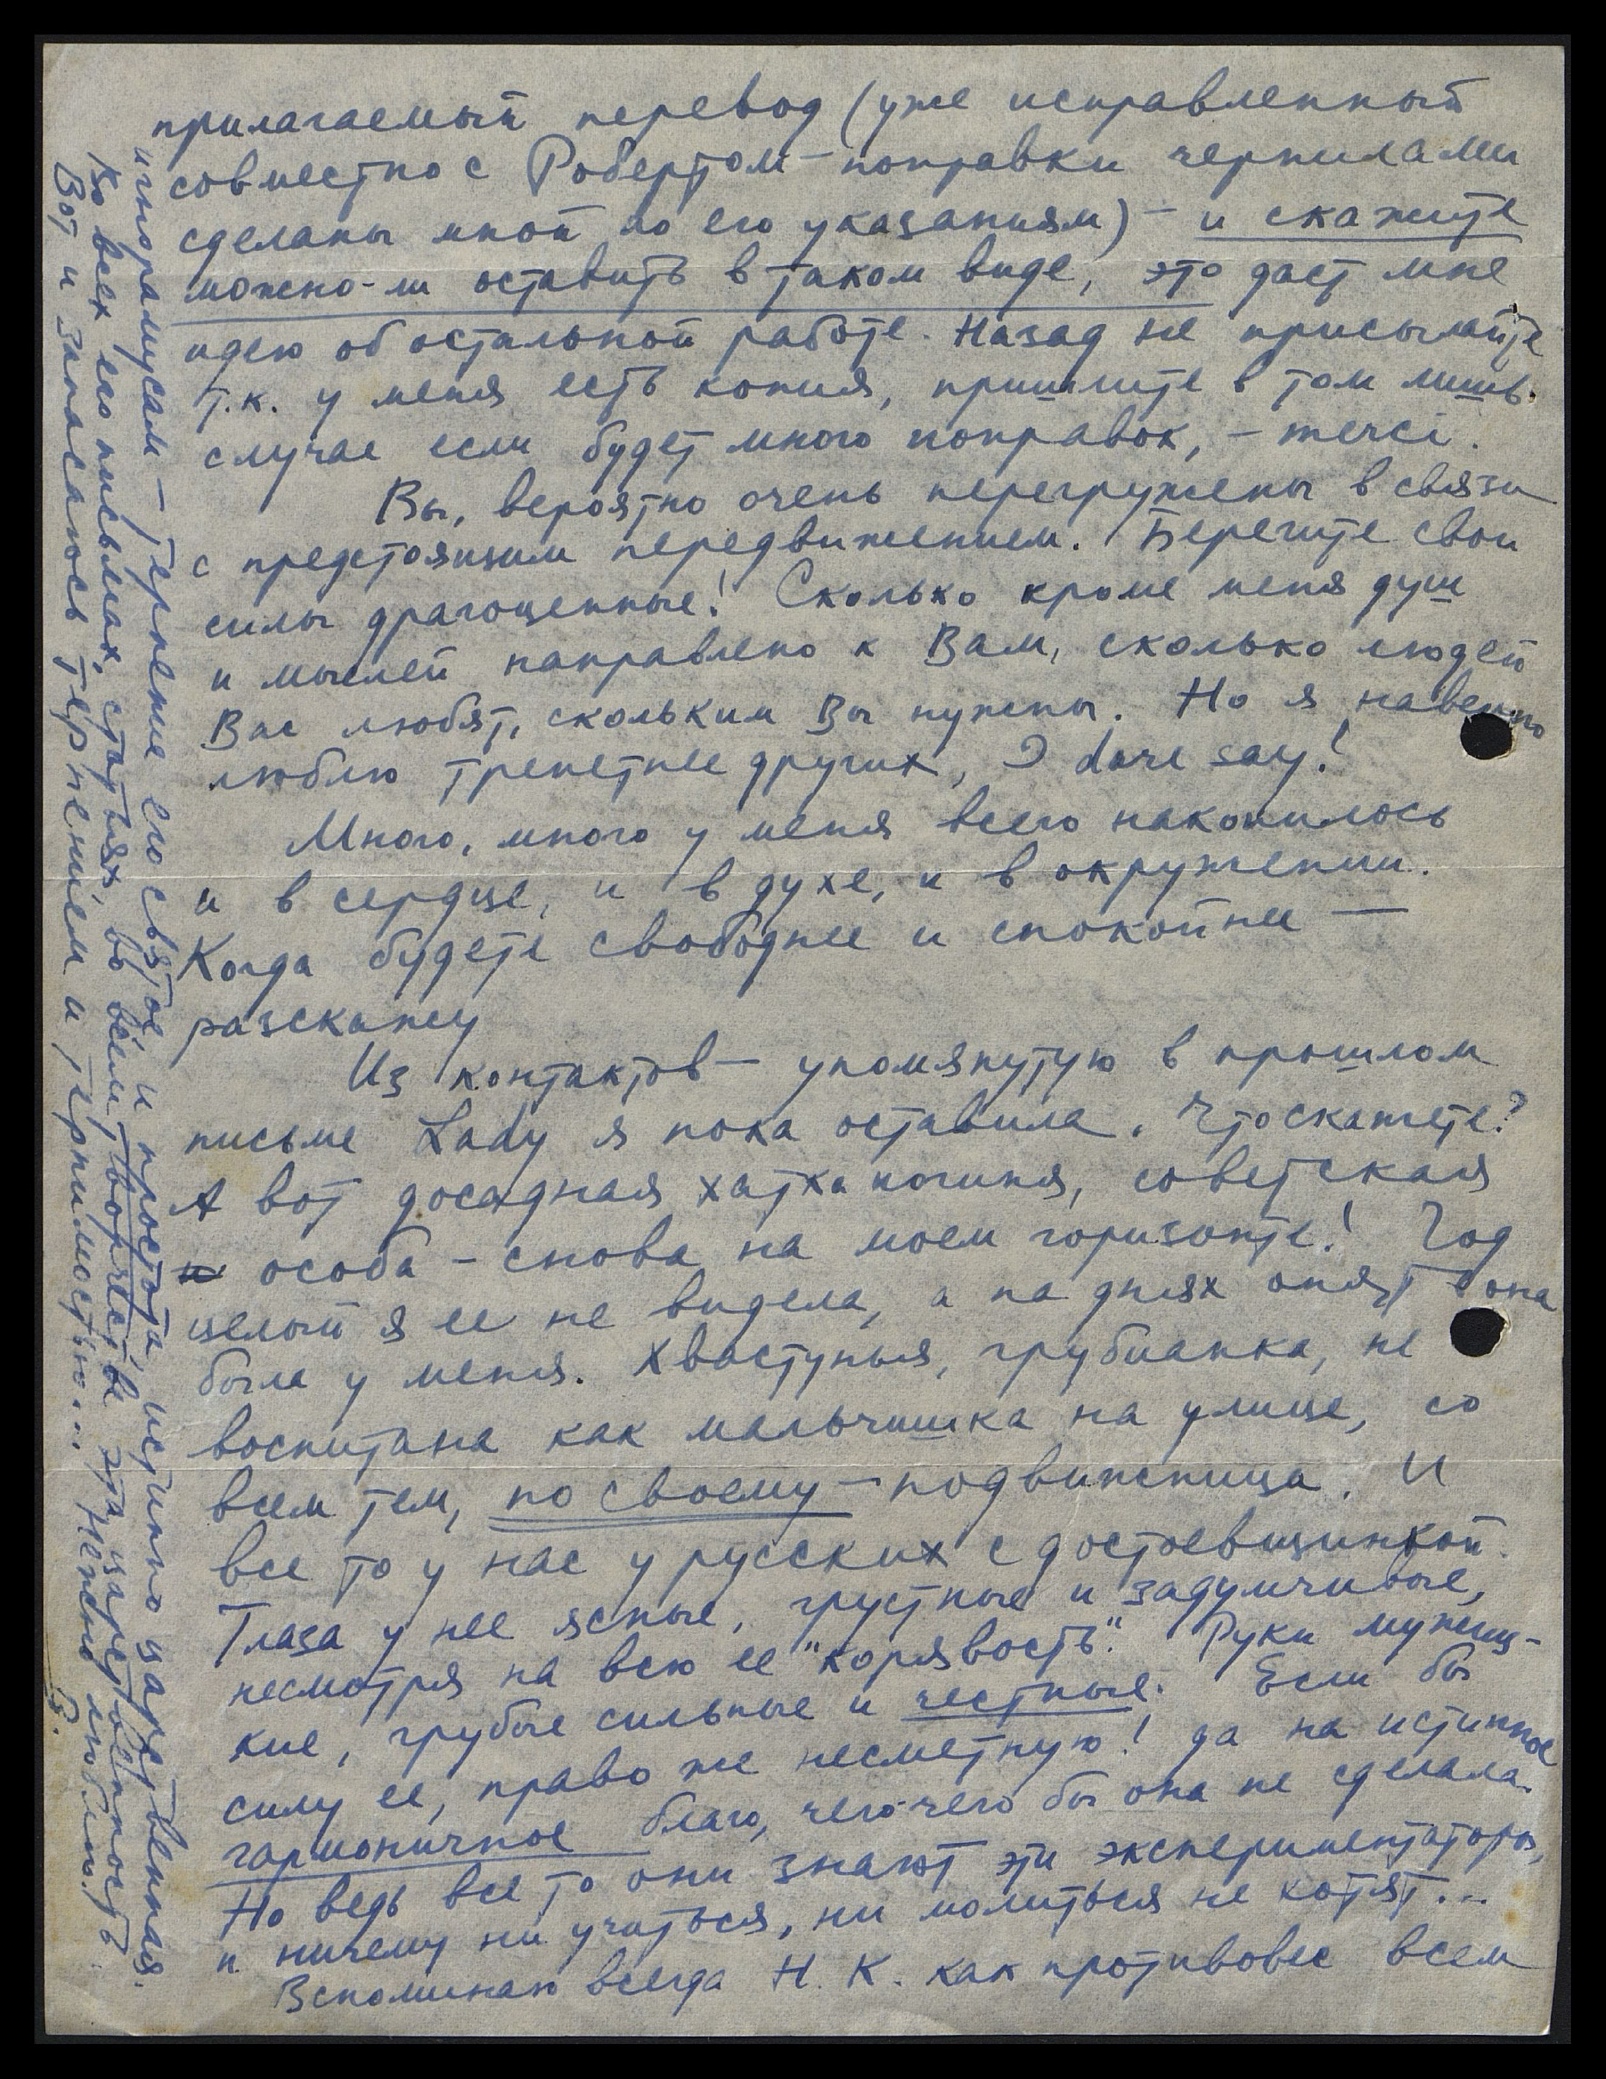 прилагаемый перевод (уже исправленный
совместно с Робертом – поправки чернилами
сделаны мной по его указаниям) – и скажите
можно-ли оставить в таком виде, это даст мне
идею об остальной работе. Назад не присылайте
т.к. у меня есть копия, пришлите в том лишь
случае если будет много поправок, – merci.
Вы, вероятно очень перегружены в связи
с предстоящим передвижением. Берегите свои
силы драгоценные! Сколько кроме меня душ
и мыслей направлено к Вам, сколько людей
Вас любят, скольким Вы нужны. Но я наверно
люблю трепетнее других, I dare say!
Много, много у меня всего накопилось
и в сердце, и в духе, и в окружении.
Когда будете свободнее и спокойнее —
разскажу
Из контактов – упомянутую в прошлом
письме Lady я пока оставила. Что скажете?
А вот досадная хатха погиня, советская
особа – снова на моем горизонте! Год
целый я ее не видела, а на днях опять она
была у меня. Хвастунья, грубианка, не
воспитана как мальчишка на улице, со
всем тем, по своему – подвижница. И
все то у нас у русских с достоевщинкой.
Глаза у нее ясные, грустные и задумчивые,
несмотря на всю ее "корявость". Руки мужиц-
кие, грубые сильные и честные. Если бы
силу ее, право же несметную! да на истинное
гармоничное благо, чего-чего бы она не сделала.
Но ведь все то они знают эти экспериментаторы,
и ничему ни учиться, ни молиться не хотят...
Вспоминаю всегда Н. К. как противовес всем
игнорамусам – терпение его святое и простота, истинно царственная.
Во всех его письмах, статьях, во всем творчестве эта царственность.
Вот и запасаюсь терпением и терпимостью... Нежно люблю.